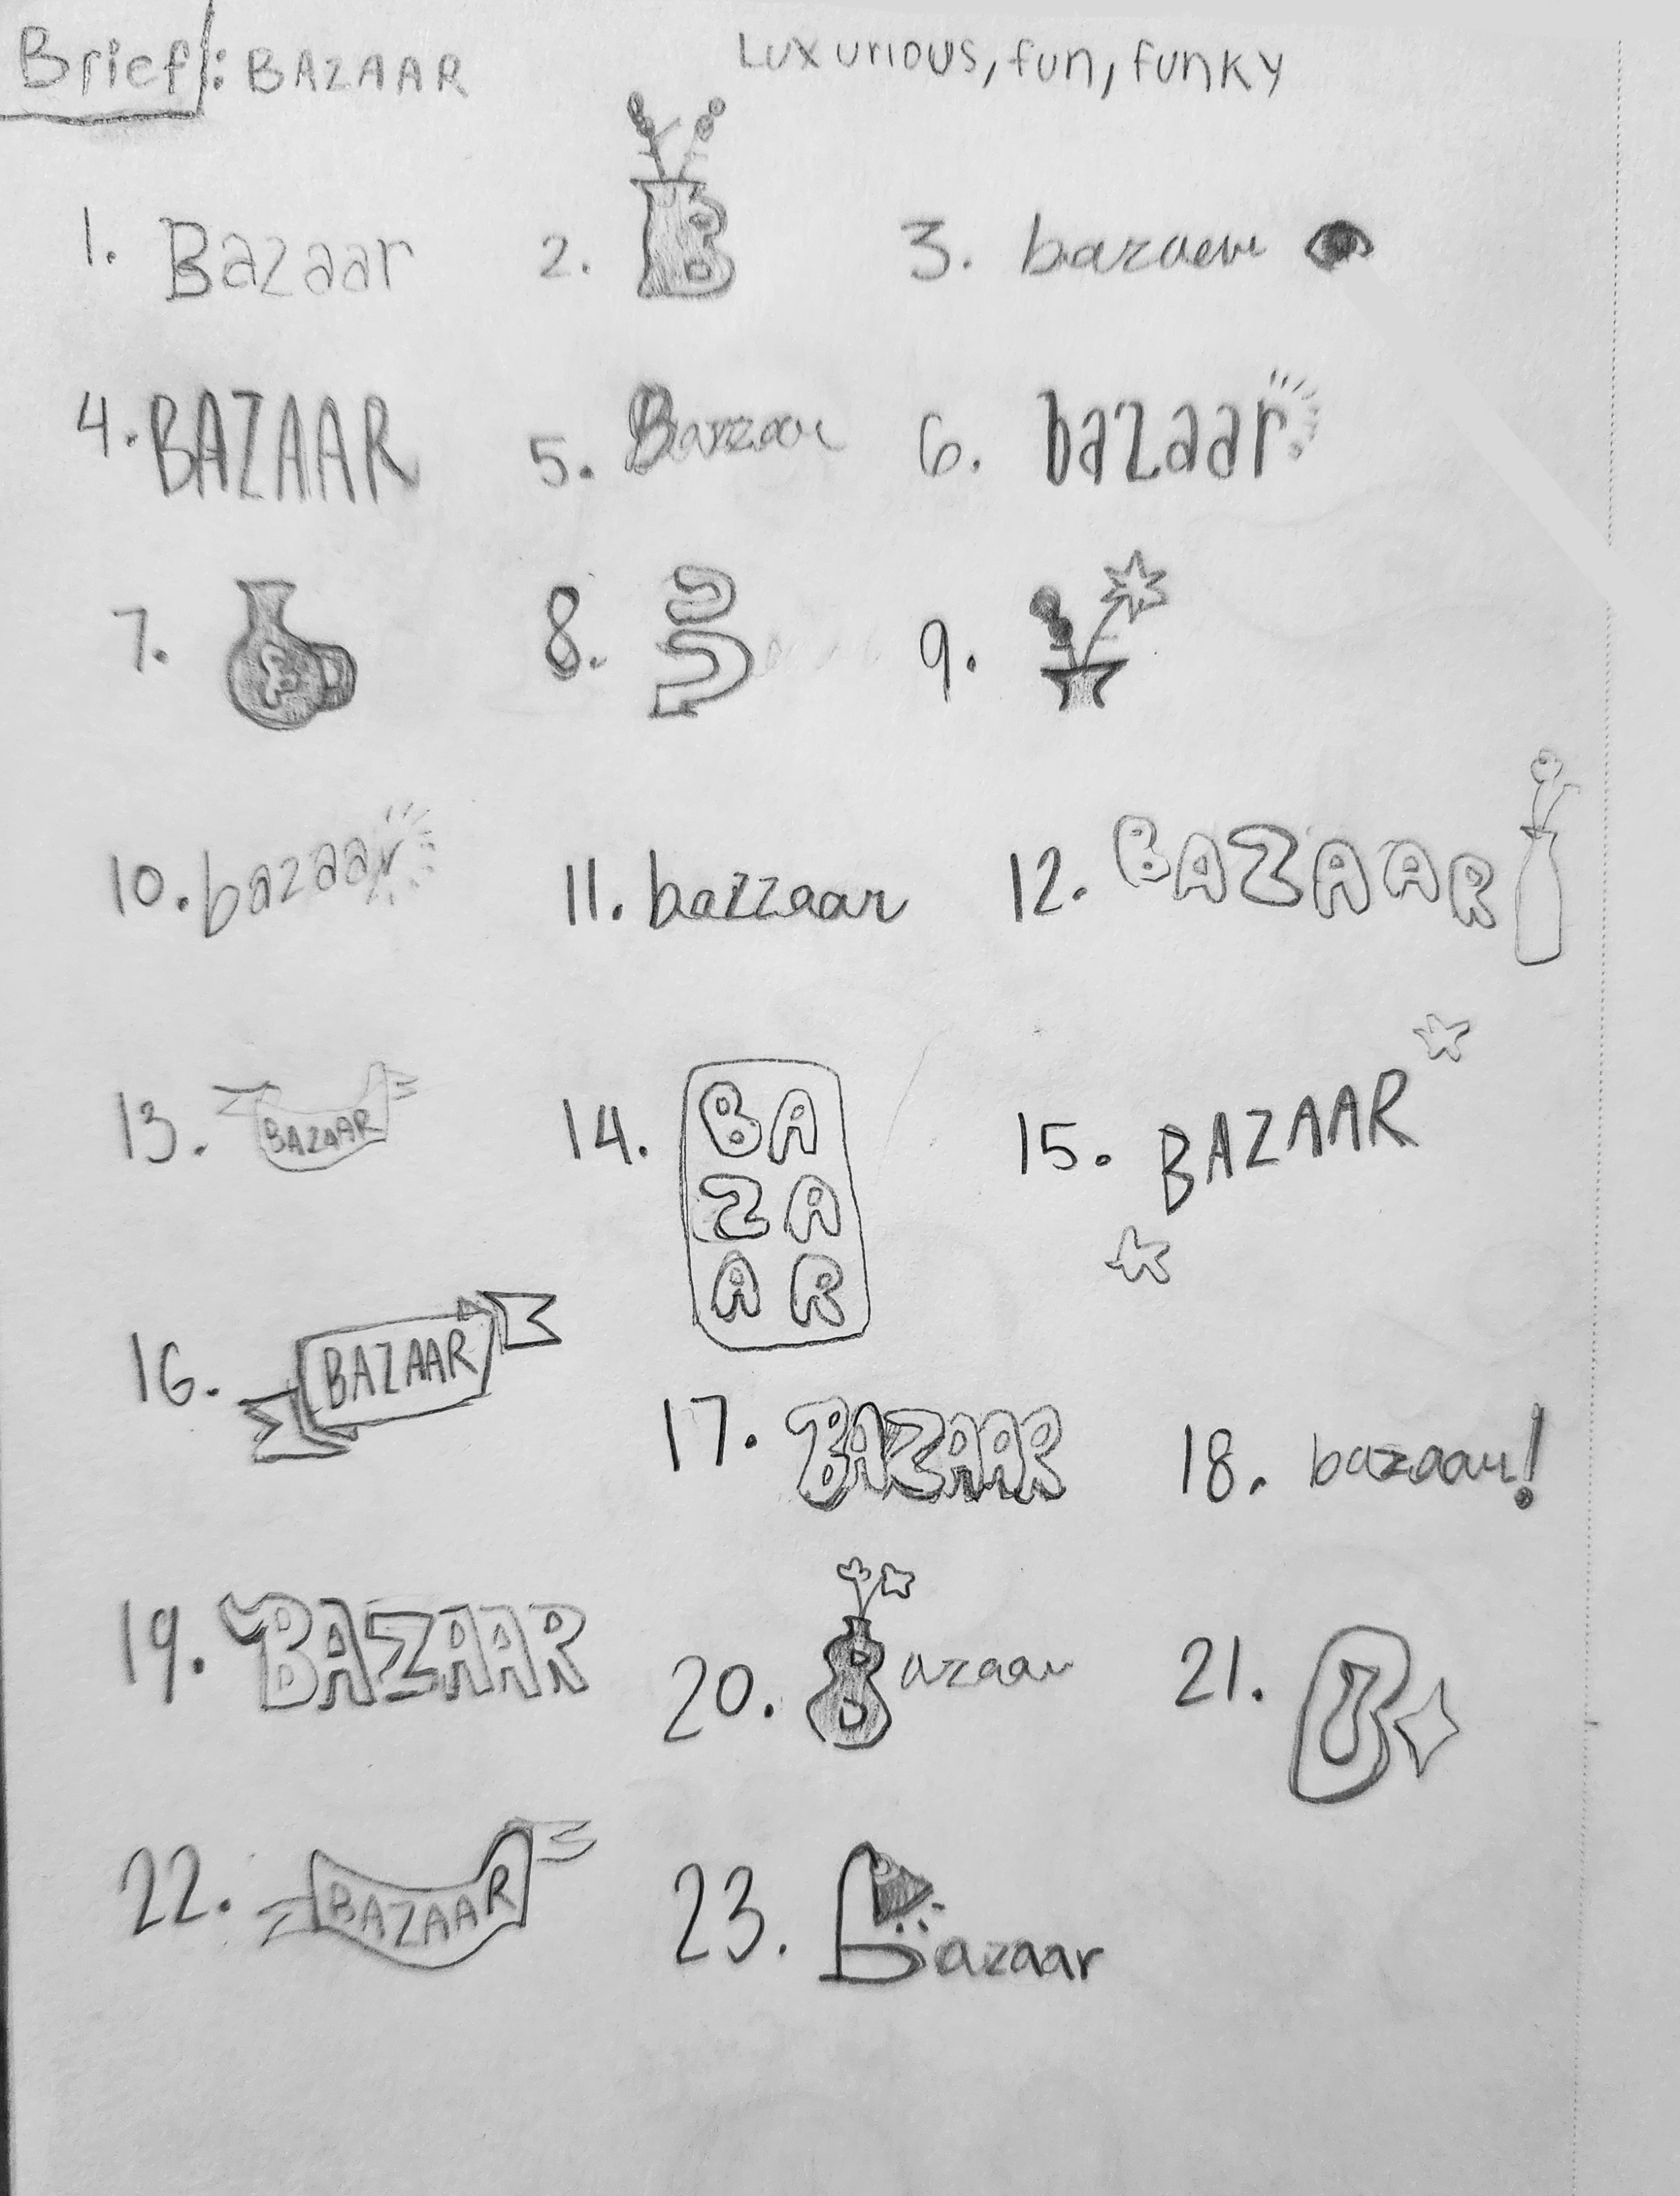 Brief: BAZAAR
Luxurious, fun, funky
1. Bazaar
2. B
3. bazaar
4. BAZAAR
5. Bazaar
6. bazaar
7.
8.
9.
10. bazaar
11. bazzaar
12. BAZAAR
13. BAZAAR
14. BA
ZA
AR
15. BAZAAR
16. BAZAAR
17. BAZAAR
18. bazaar!
19. BAZAAR
20. Bazaar
21. B
22. BAZAAR
23. bazaar